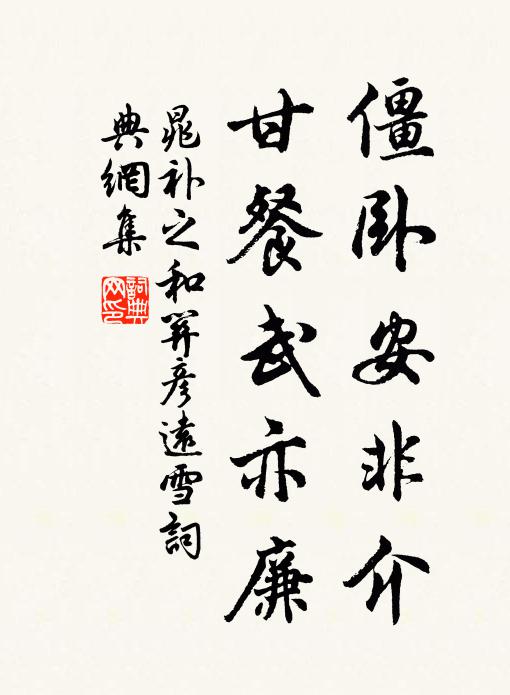 僵卧安非介
甘餐武亦廉
晁补之和羿彦遠雪詞
典網集
詞典網印